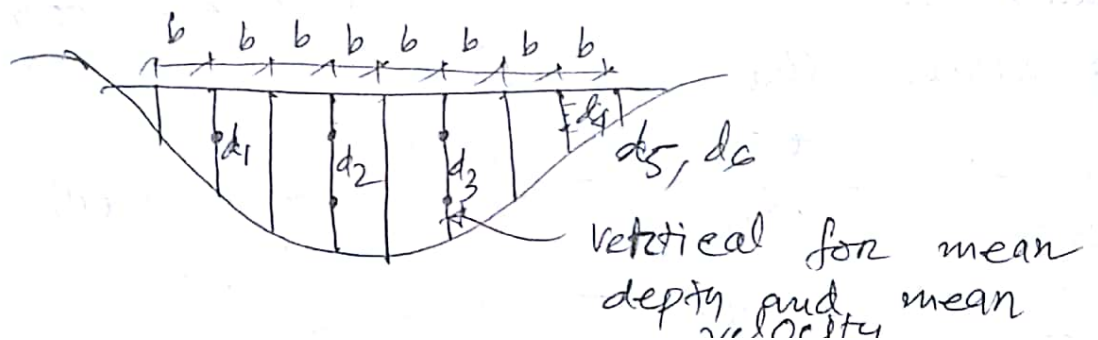 b b b b b b b b
d1 d2 d3 d4
d5, d6
vertical for mean
depth and mean
velocity